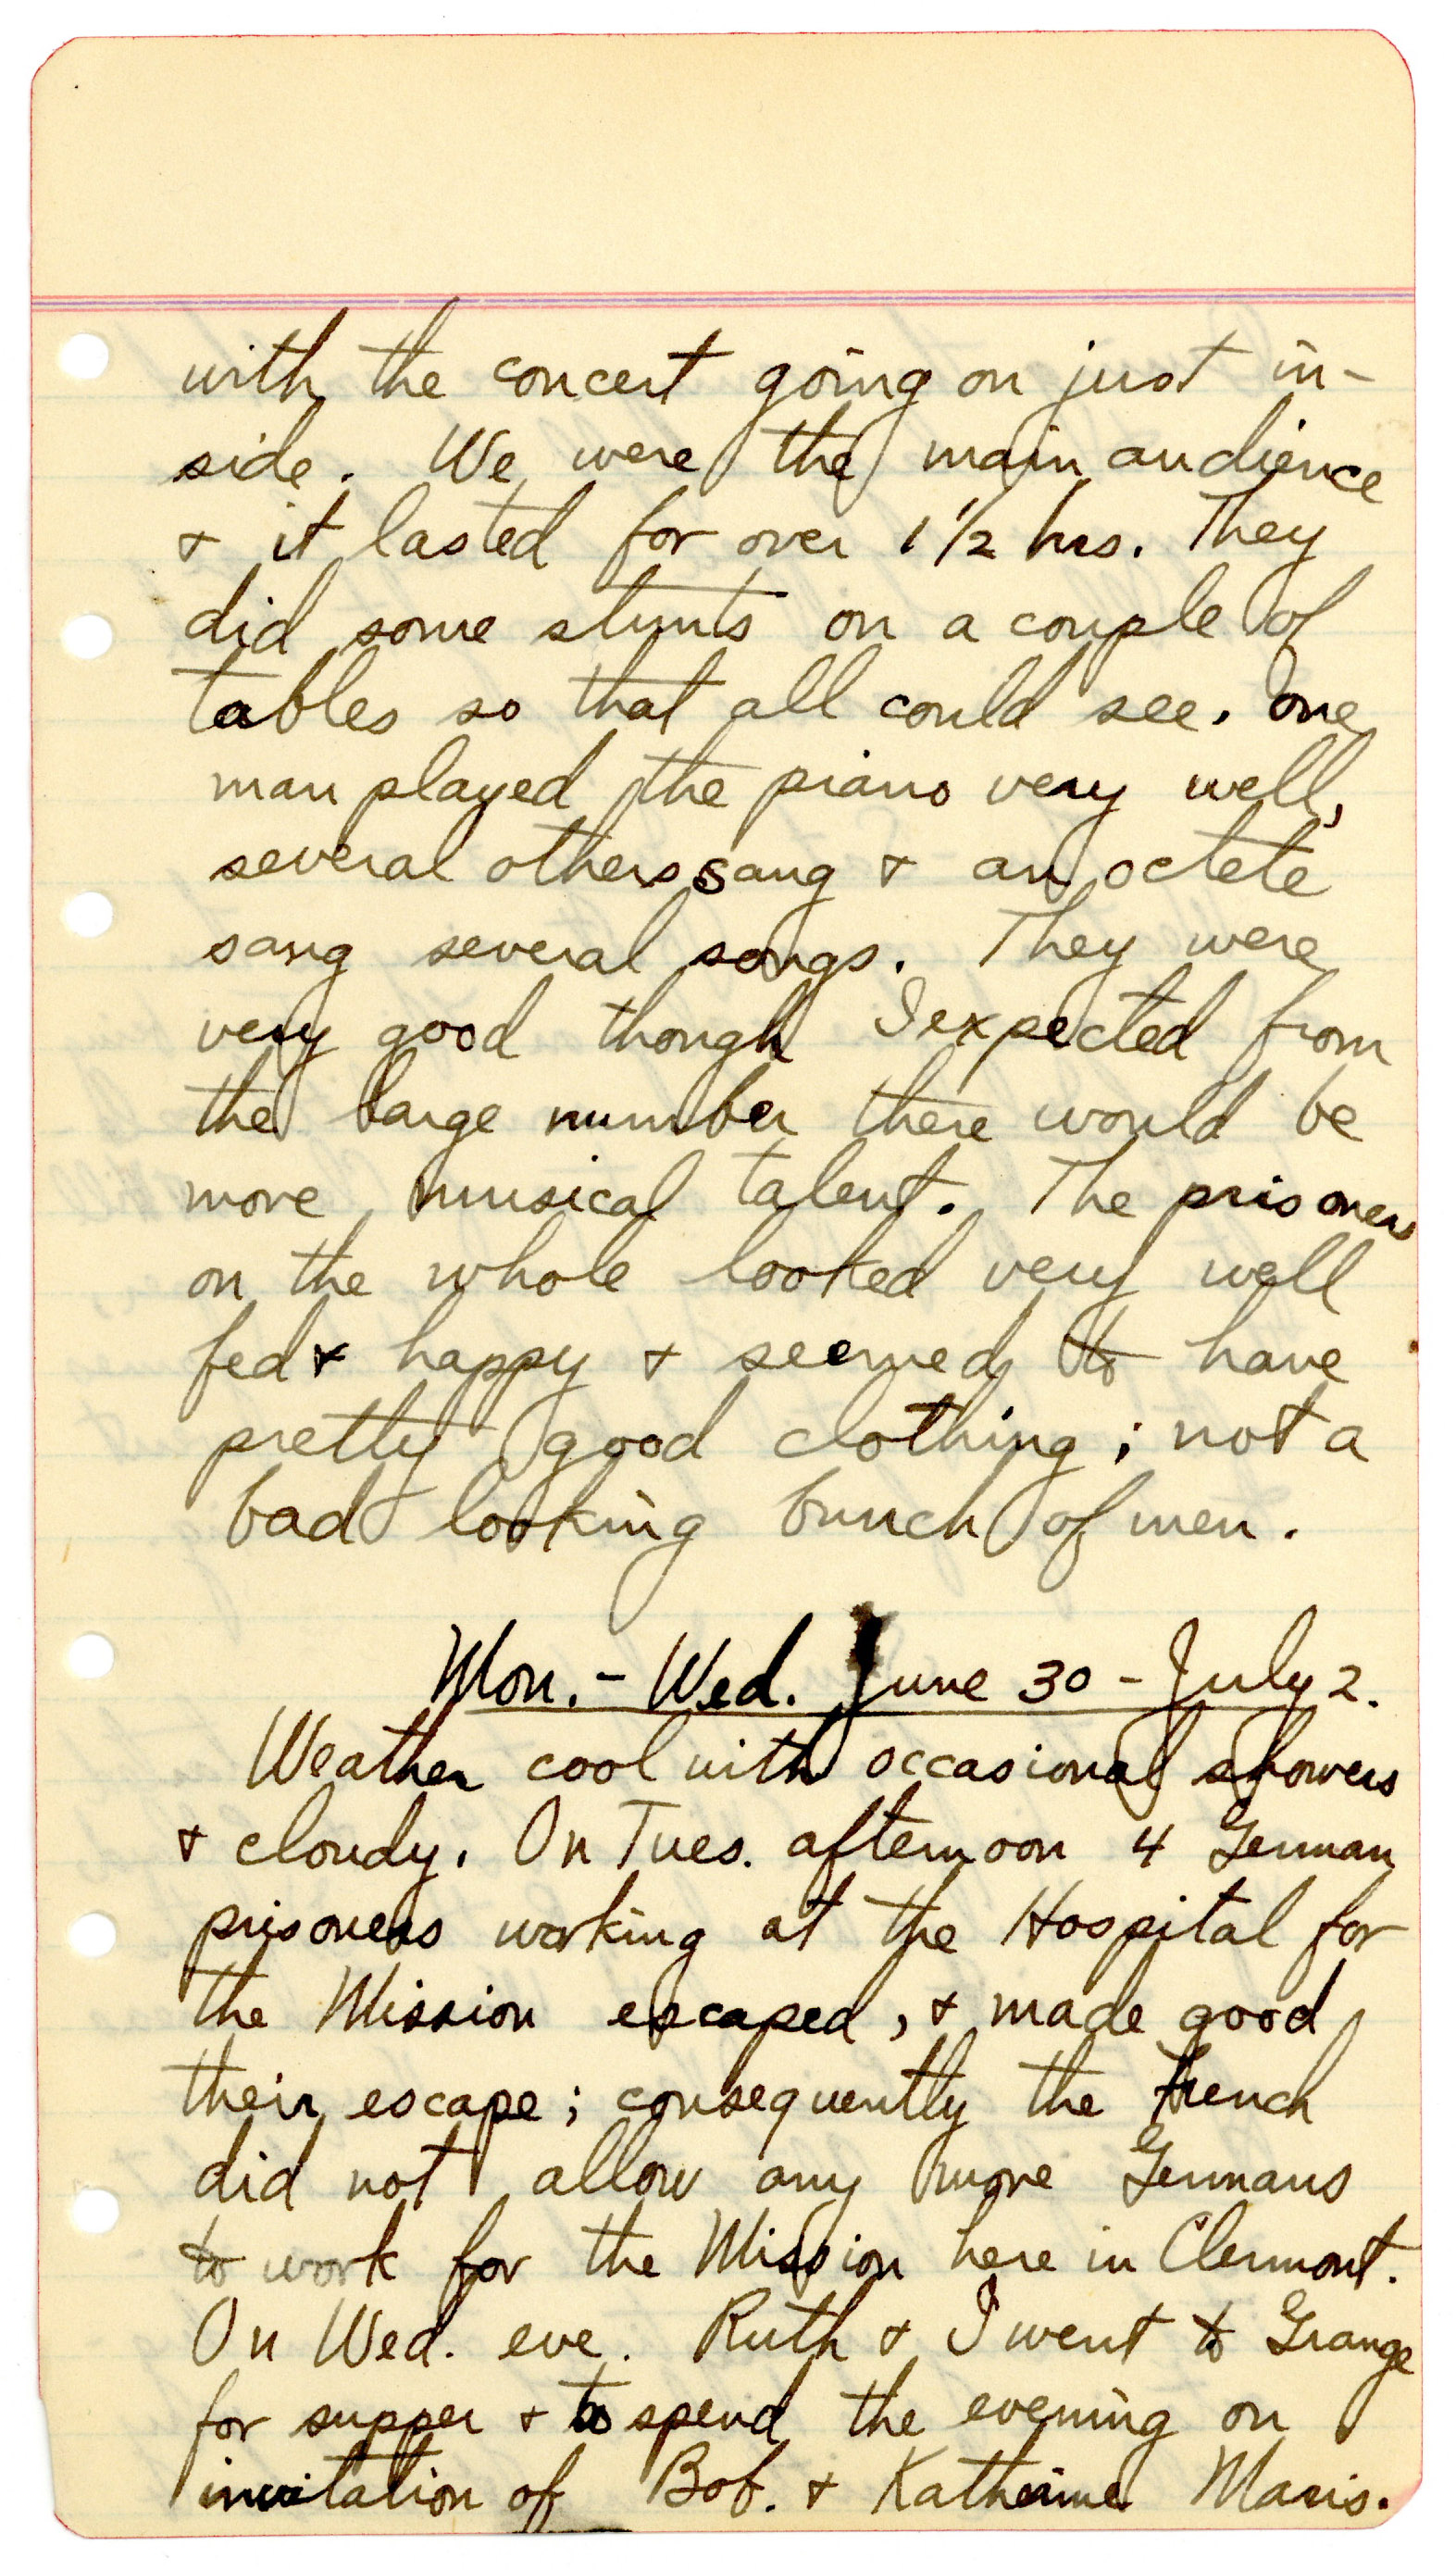 with the concert going on just in-
side. We were the main audience
& it lasted for over 1 1/2 hrs. They
did some stunts on a couple of
tables so that all could see. One
man played the piano very well,
several others sang & an octete
sang several songs. They were
very good though I expected from
the large number there would be
more musical talent. The prisoners
on the whole looked very well
fed & happy & seemed to have
pretty good clothing; not a
bad looking bunch of men.
Mon. - Wed. June 30 - July 2.
Weather cool with occasional showers
& cloudy. On Tues. afternoon 4 German
prisoners working at the Hospital for
the Mission escaped, & made good
their escape; consequently the French
did not allow any more Germans
to work for the Mission here in Clermont.
On Wed. eve. Ruth & I went to Grange
for supper & to spend the evening on
invitation of Bob. & Katherine Maris.